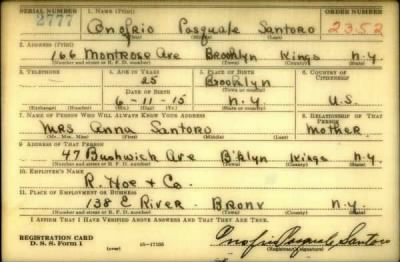 SERIAL NUMBER 1. NAME (Print) ORDER NUMBER
2777 Onofrio Pasquale Santoro 2352
(First) (Middle) (Last)
2. ADDRESS (Print)
166 Montrose Ave Brooklyn Kings N.Y
(Number and street or R. F. D. number) (Town) (County) (State)
3. TELEPHONE 4. AGE IN YEARS 5. PLACE OF BIRTH 6. COUNTRY OF CITIZENSHIP
25 Brooklyn
DATE OF BIRTH (Town or county)
6-11-15 N.Y. U.S.
(Exchange) (Number) (Mo.) (Day) (Yr.) (State or country)
7. NAME OF PERSON WHO WILL ALWAYS KNOW YOUR ADDRESS 8. RELATIONSHIP OF THAT PERSON
Mrs Anna Santoro Mother
(Mr., Mrs., Miss) (First) (Middle) (Last)
9. ADDRESS OF THAT PERSON
47 Bushwick Ave B'klyn Kings N.Y
(Number and street or R. F. D. number) (Town) (County) (State)
10. EMPLOYER'S NAME
R. Hoe + Co.
11. PLACE OF EMPLOYMENT OR BUSINESS
138 E River Bronx N.Y.
(Number and street or R. F. D. number) (Town) (County) (State)
I AFFIRM THAT I HAVE VERIFIED ABOVE ANSWERS AND THAT THEY ARE TRUE.
REGISTRATION CARD
D. S. S. Form 1 (over) Onofrio Pasquale Santoro
(Registrant's signature)